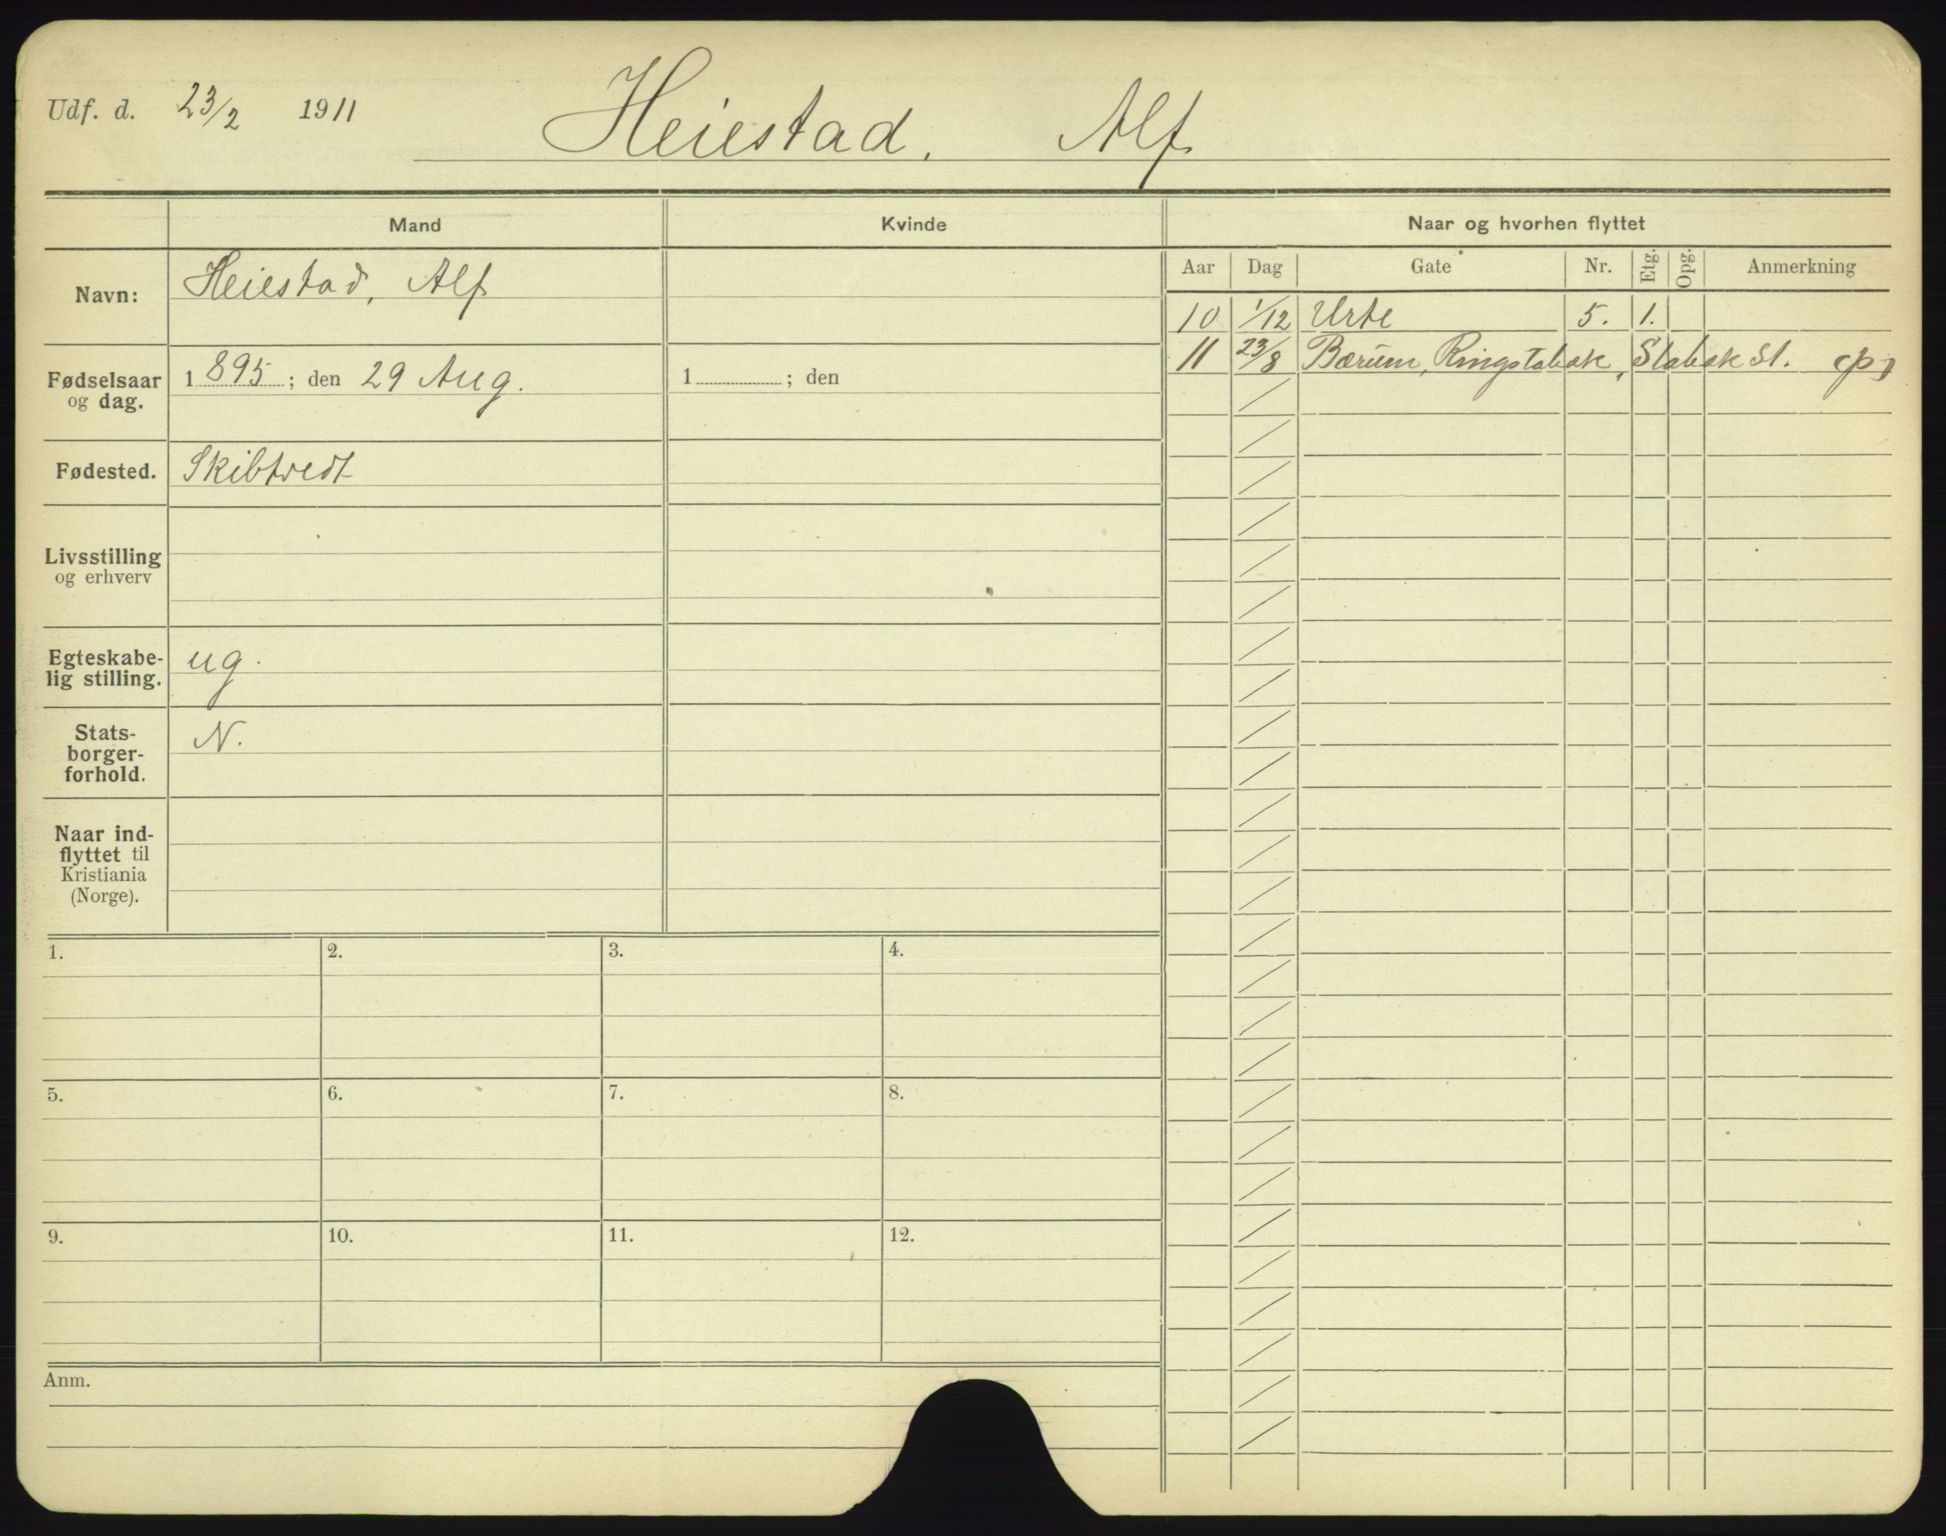 Udf. d. 23/2 1911
Heiestad, Alf
Mand
Kvinde
Naar og hvorhen flyttet
Aar Dag Gate Nr. Etg. Opg. Anmerkning
Navn: Heiestad, Alf
10 1/12 Urte 5. 1.
11 23/8 Bærum, Ringstabæk, Stabæk St.
Fødselsaar
og dag.
1895; den 29 Aug.
1 ; den
Fødested. Skibtvedt
Livsstilling
og erhverv
Egteskabe-
lig stilling.
ug.
Stats-
borger-
forhold.
N.
Naar ind-
flyttet til
Kristiania
(Norge).
1. 2. 3. 4.
5. 6. 7. 8.
9. 10. 11. 12.
Anm.